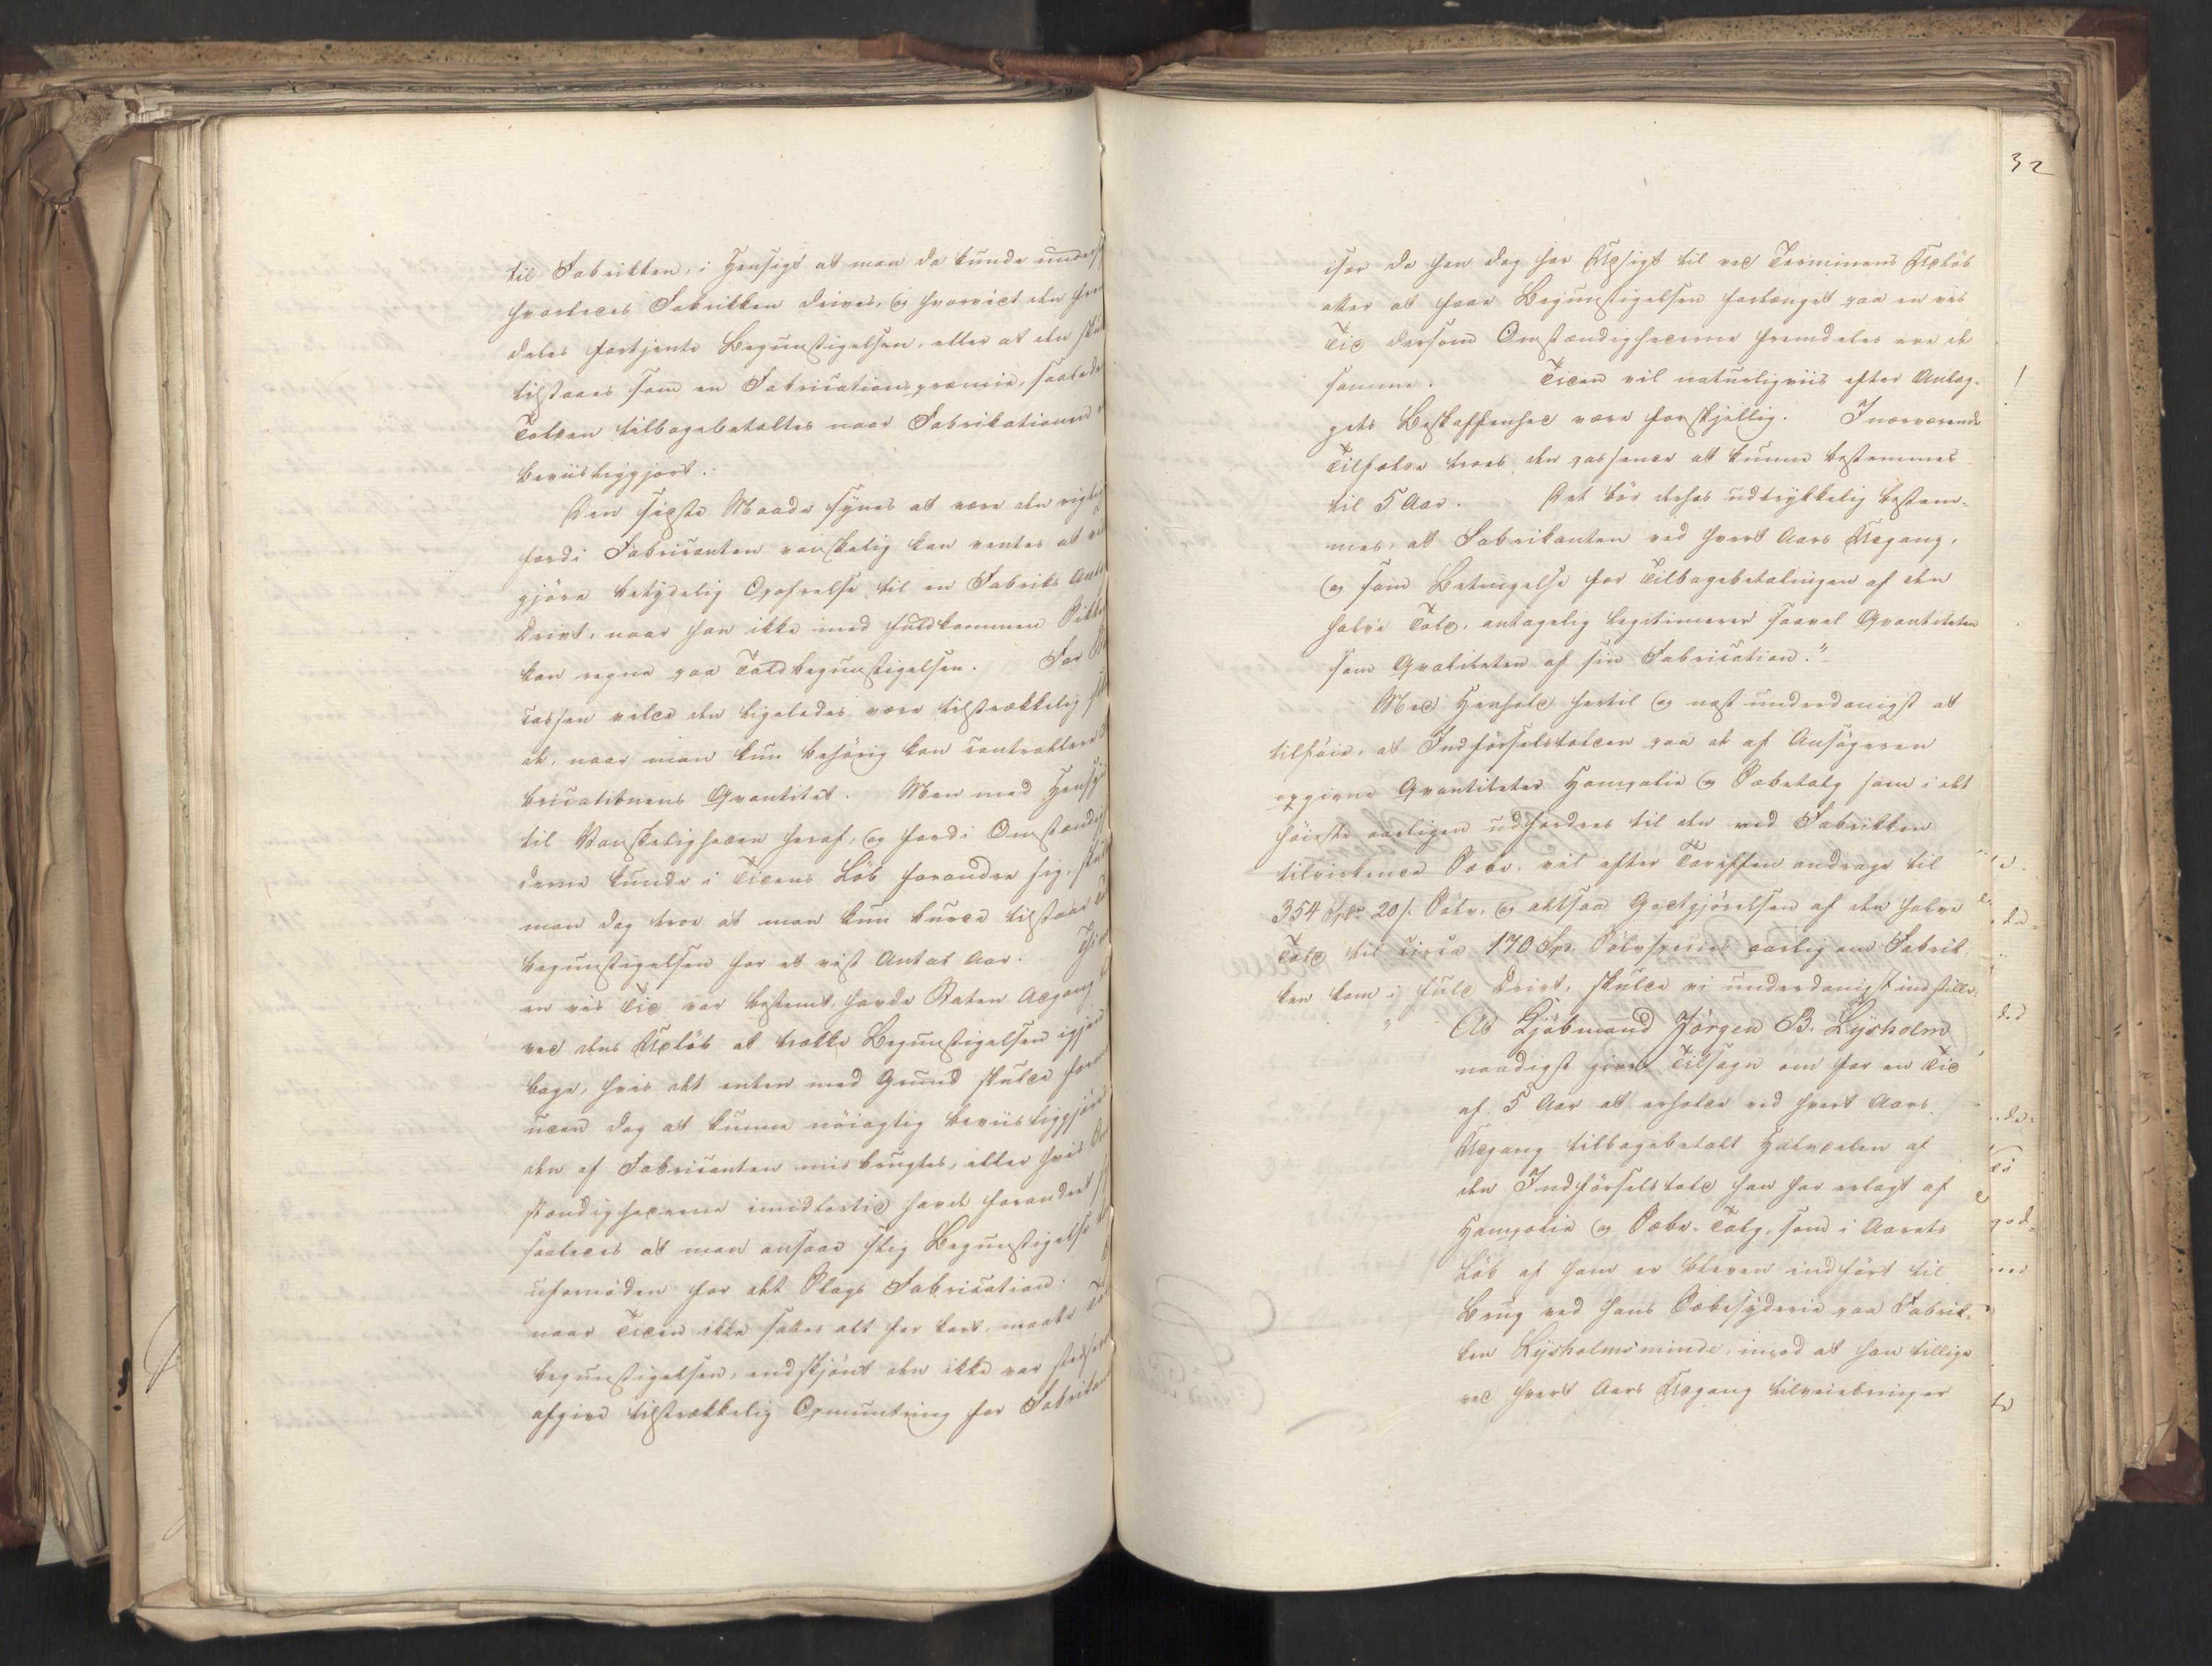 til Fabrikken, i Hensigt at man da kunde unders
hvorledes Fabrikken dreves, og hvorvidt den frem
deles fortjente Begunstigelsen, eller at den skul
tilstaaes som en Fabricationspræmie, saalede
Tolden tilbagebetaltes naar Fabrikationen
beviisliggjort.
Den sidste Maade synes at være den rigtig
fordi Fabricanten vanskelig kan ventes at vil
gjøre betydelig Opofrelse til en Fabriks Anl
Drivt, naar han ikke med fuldkommen Sikker
kan regne paa Toldbegunstigelsen. For
cassen vilde den ligeledes være tilstrækkelig
de, naar man kun behørig kan controllere
bricationens Qvantitet. Men med Hensyn
til Vanskeligheden heraf, og fordi Omstændig
derne kunde i Tidens Løb forandre sig, skul
man dog troe at man kun burde tilstaae
begunstigelsen for et vist Antal Aar. Thi
en vis Tid var bestemt, havde Staten Adgang
ved dens Udløb at trække Begunstigelsen
bage, hvis det enten med Grund skulde
uden dog at kunne nøiagtig beviisliggjøre
den af Fabricanten misbrugtes, eller hvis Om
stændighederne imidlertid havde forandret
saaledes at man ansaae slig Begunstigelse
ufornøden for det Slags Fabrication.
naar Tiden ikke sattes alt for kort, maatte Tol
begunstigelsen, endskjønt den ikke var stedse
afgive tilstrækkelig Opmuntring for Fabrikan
32
især da han dog har Udsigt til ved Terminens Udløb
atter at faae Begunstigelsen forlænget paa en vis
Tid dersom Omstændighederne fremdeles ere de
samme. Tiden vil naturligviis efter Anlæg-
gets Beskaffenhed være forskjellig. I nærværende
Tilfælde troes den passende at kunne bestemmes
til 5 Aar. Det bør derhos udtrykkelig bestem-
mes, at Fabrikanten ved hvert Aars Udgang,
og som Betingelse for Tilbagebetalingen af den
halve Told, antagelig legitimerer saavel Qvantiteten
som Qvaliteten af sin Fabrication."
Med Henhold hertil og næst underdanigst at
tilføie, at Indførselstolden paa de af Ansøgeren
opgivne Qvantiteter Hampolie og Sæbetalg som i det
høieste aarligen udfordres til den ved Fabrikken
tilvirkende Sæbe, vil efter Tariffen andrage til
354 Spd. 20 s. Sølv, og altsaa Godtgjørelsen af den halve
Told til circa 170 Spd. Sølvspecies aarlig om Fabrik-
ken kom i fuld Drivt, skulde vi underdanigst indstille:
" At Kjøbmand Jörgen B. Lysholm
naadigst gives Tilsagn om for en Tid
af 5 Aar at erholde ved hvert Aars
Udgang tilbagebetalt Halvdelen af
den Indførselstold han har erlagt af
Hampolie og Sæbe-Talg, som i Aarets
Løb af ham er bleven indført til
Brug ved hans Sæbesyderie paa Fabrik-
ken Lysholmsminde, imod at han tillige
ved hvert Aars Udgang tilveiebringer